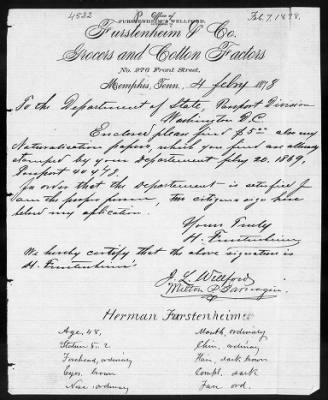 4532
Feb 7, 1878.
Office of
FURSTENHEIM & WELLFORD,
Furstenheim & Co.
Grocers and Cotton Factors
No. 276 Front Street,
Memphis, Tenn., 4 febry 1878
To the Department of State, Passport Division
Washington D.C.
Enclosed please find $5.00 also my
Naturalisation papers, which you find are allready
stamped by your departement 20. 1869,
Passport 40478.
In order that the Departement is satisfied I
am the proper person, two citizens sign here
below my aplication.
Yours Truly
H. Furstenheim
We hereby certify that the above signature is
H. Furstenheim's
J. L. Wellford
Milton P. Jarnagin
Herman Furstenheim
Age, 48,
Mouth, ordinary
Stature 5.. 2
Chin, ordinary
Forehead, ordinary
Hair, dark brown
Eyes, brown
Compl. dark
Nose, ordinary
Face ord.